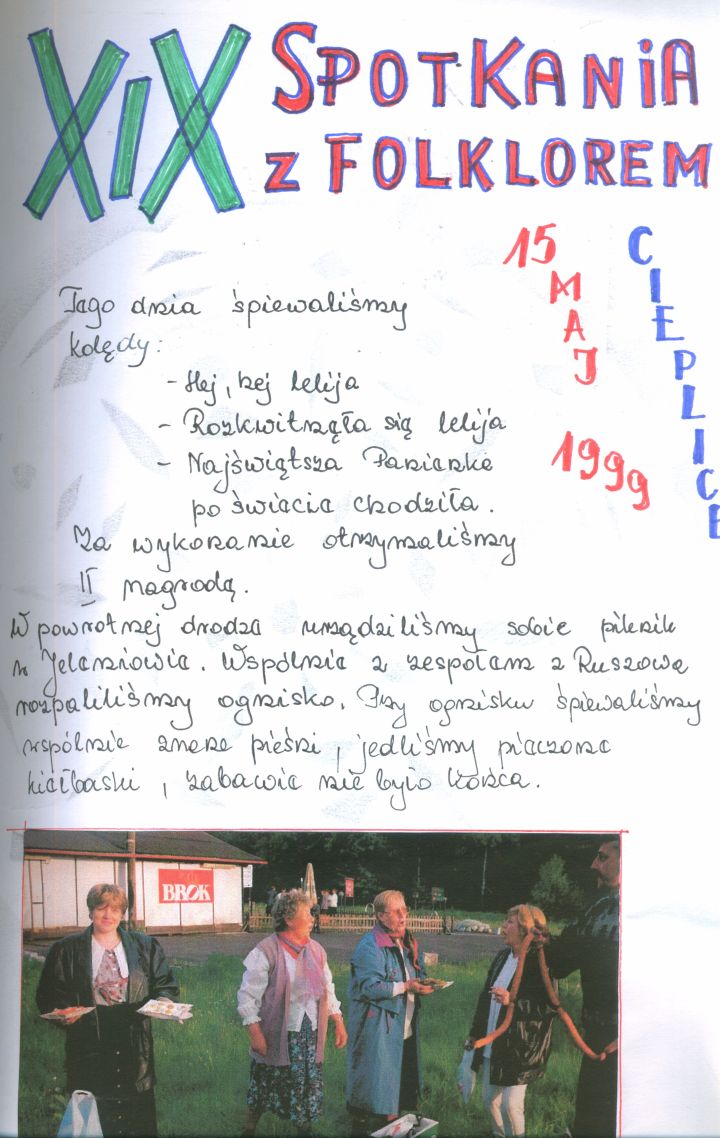 XIX SPOTKANIA
z FOLKLOREM
15 MAJ 1999
CIEPLICE
Tego dnia śpiewaliśmy
kolędy:
- Hej, hej lelija
- Rozkwitnęła się lelija
- Najświętsza Panienka
po świecie chodziła.
Za wykonanie otrzymaliśmy
II nagrodę.
W powrotnej drodze urządziliśmy sobie piknik
w Jeleniowie. Wspólnie z zespołem z Ruszowa
rozpaliliśmy ognisko. Przy ognisku śpiewaliśmy
wspólnie znane pieśni, jedliśmy pieczone
kiełbaski, zabawie nie było końca.
BROK